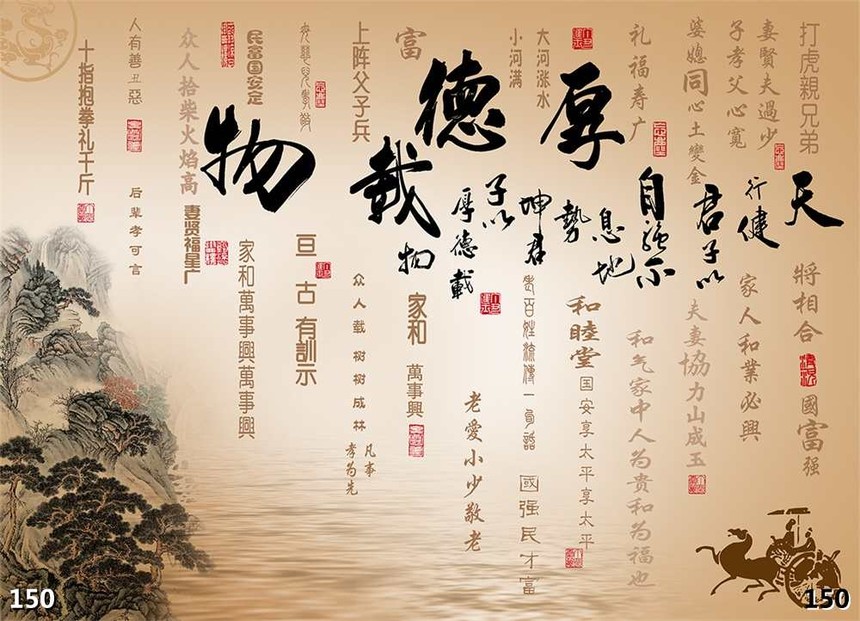 打虎親兄弟
天
將相合
國富强
妻賢夫過少
子孝父心寬
行健
家人和業必興
婆媳同心土變金
君子以
夫妻協力山成玉
礼福寿广
自強不
和气家中人为贵和为福也
厚
息地
和睦堂
国安享太平享太平
大河涨水
小河满
勢
坤君
百姓
國强民才富
德
子以
厚德載
老愛小少敬老
富
載
物
家和
萬事興
上阵父子兵
众人载树树成林
凡事
孝为先
亘古有訓示
民富国安定
物
家和萬事興萬事興
众人拾柴火焰高
妻贤福星广
人有善丑惡
后辈孝可言
十指抱拳礼千斤
150
150